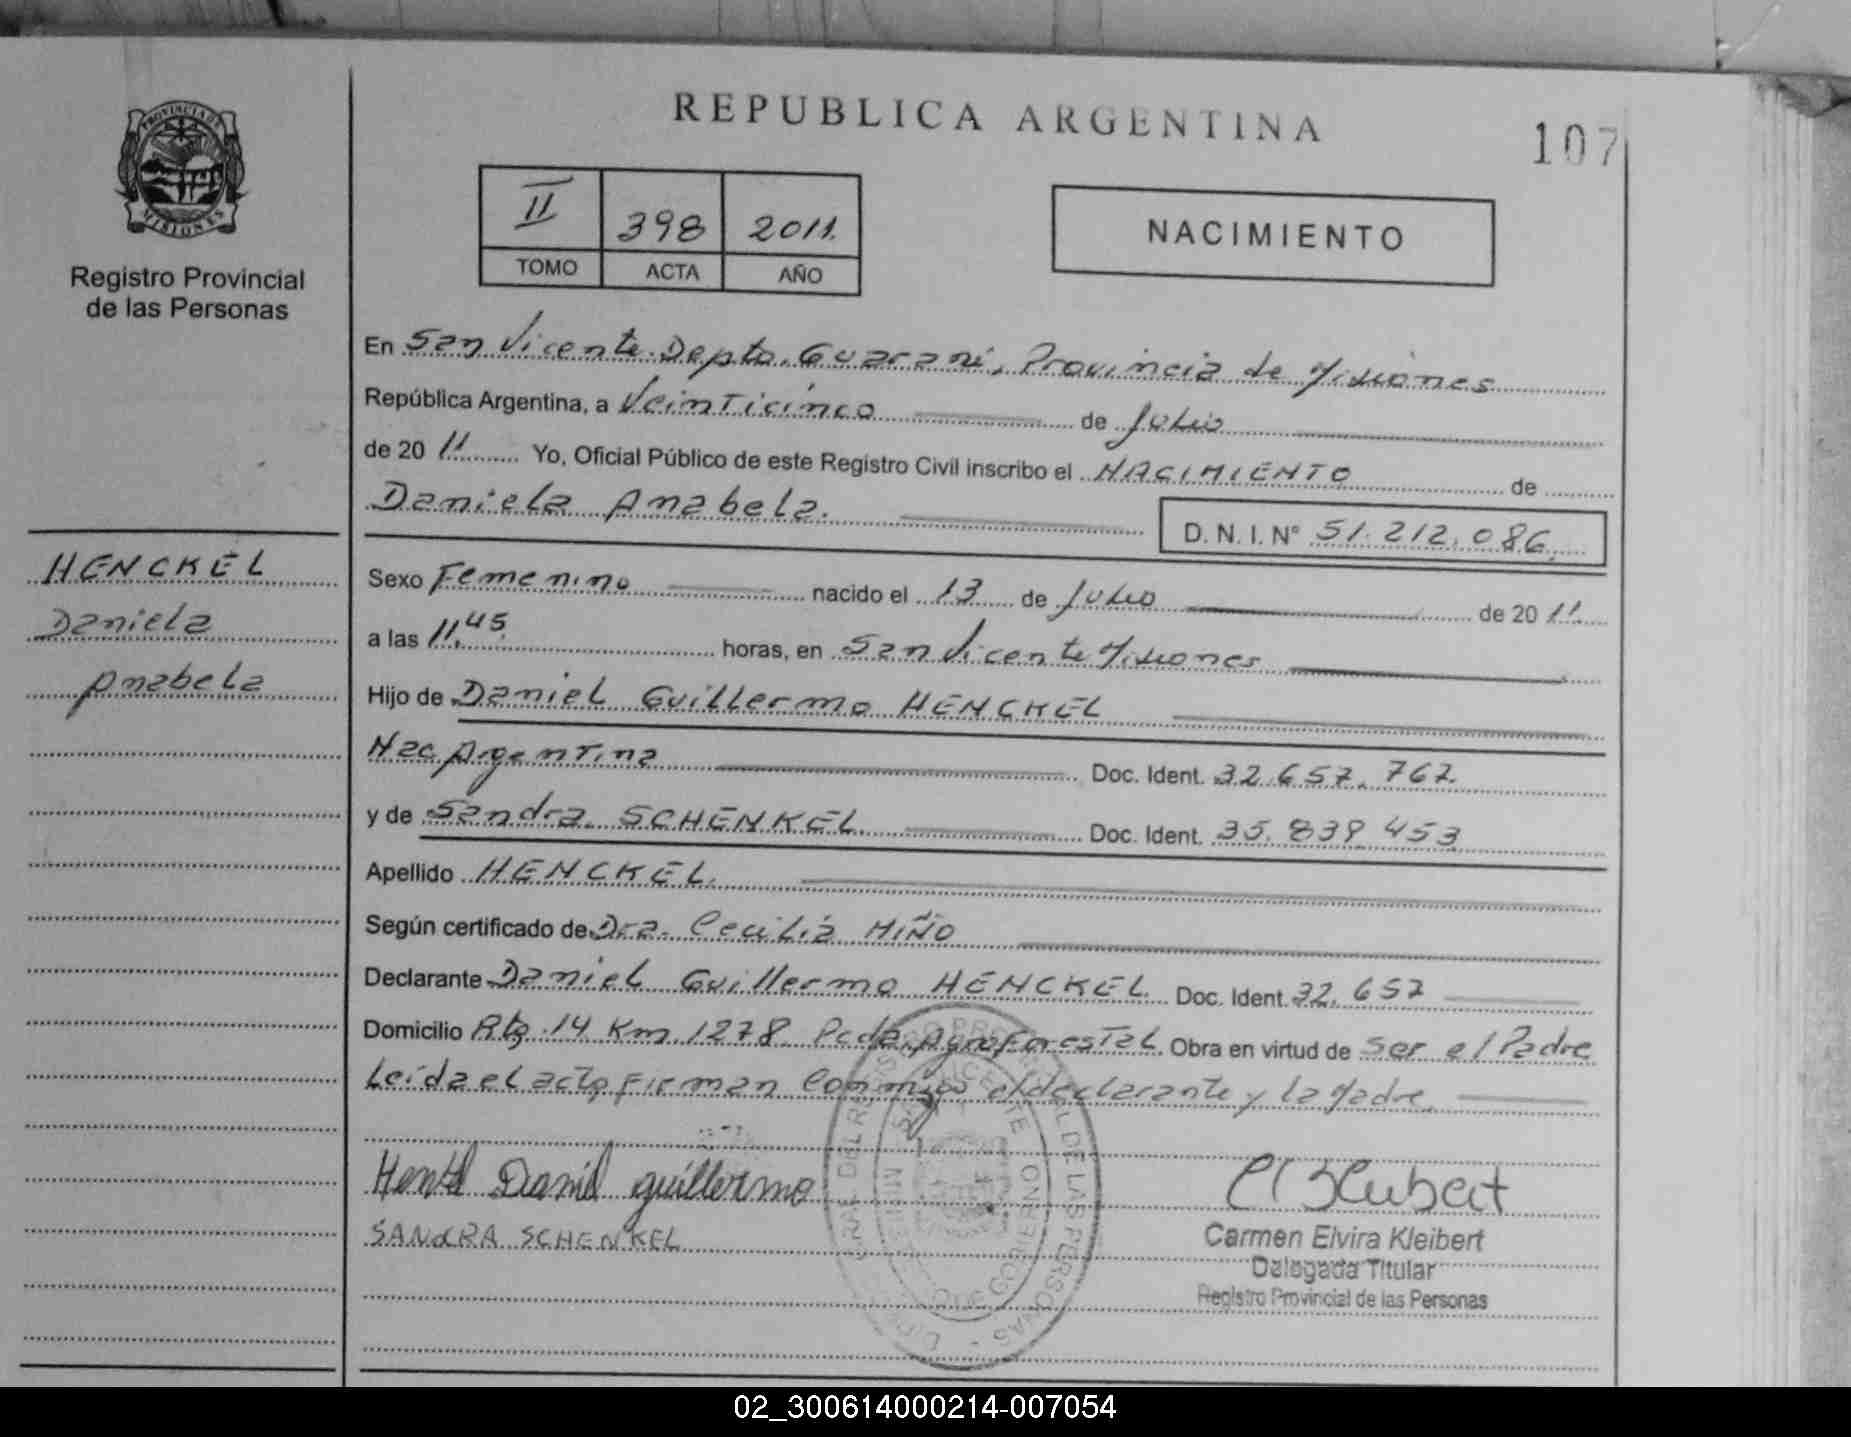 REPUBLICA ARGENTINA
107
PROVINCIA DE
MISIONES
Registro Provincial
de las Personas
II 398 2011.
TOMO ACTA AÑO
NACIMIENTO
En San Vicente. Depto. Guaraní, Provincia de Misiones
República Argentina, a Veinticinco de Julio
de 20 11 Yo, Oficial Público de este Registro Civil inscribo el NACIMIENTO de
Daniela Anabela.
D. N. I. N° 51.212.086
HENCKEL
Daniela
Anabela
Sexo Femenino nacido el 13 de Julio de 20 11.
a las 11,45 horas, en San Vicente Misiones
Hijo de Daniel Guillermo HENCKEL
Nac Argentina Doc. Ident. 32.657.767.
y de Sandra SCHENKEL Doc. Ident. 35.839 453
Apellido HENCKEL.
Según certificado de Dra. Cecilia MIÑO
Declarante Daniel Guillermo HENCKEL Doc. Ident. 32.657
Domicilio Rta 14 Km 1278 Pcda. Agroforestal. Obra en virtud de ser el Padre
Leida el acta firman conmigo el declarante y la Madre.
Daniel guillermo
SANdRA SCHENKEL
Carmen Elvira Kleibert
Delegada Titular
Registro Provincial de las Personas
02_300614000214-007054